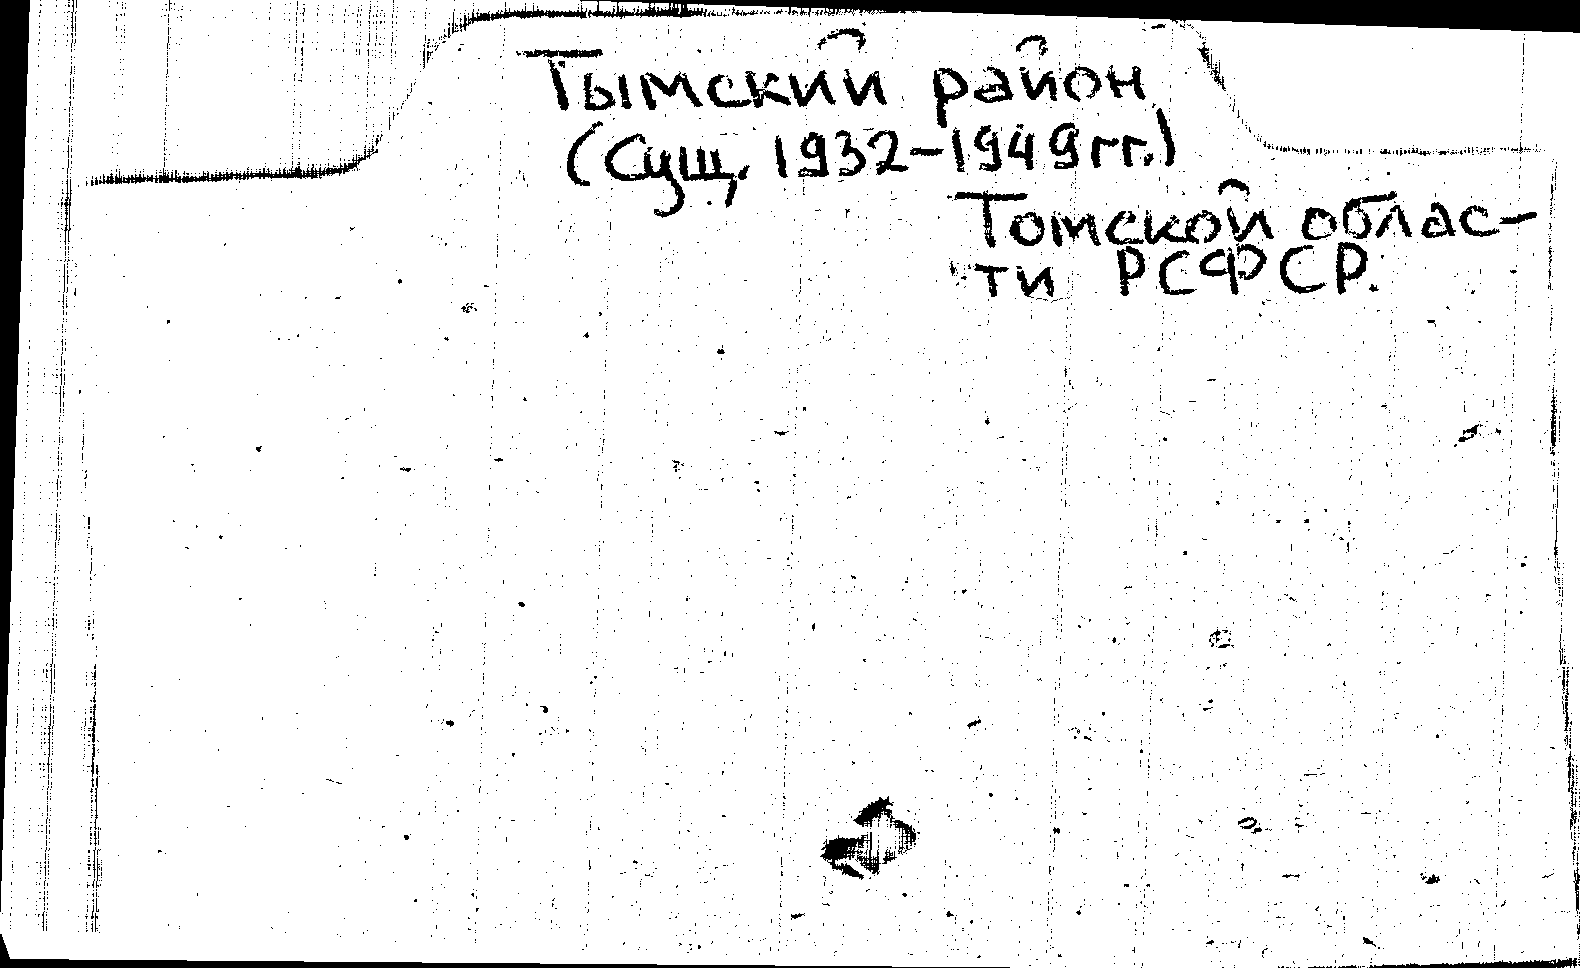 Тымский район
(Сущ. 1932-1949 гг.)
Томской облас-
ти РСФСР.